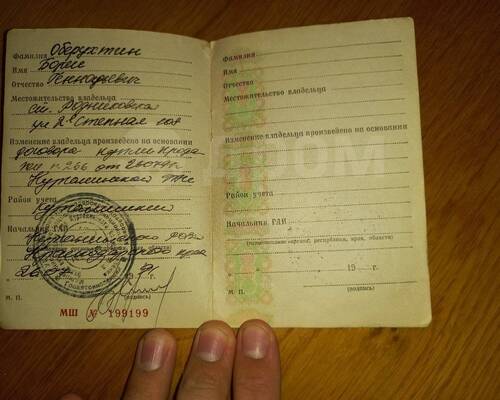 Фамилия Оберухтин
Имя Борис
Отчество Геннадиевич
Местожительство владельца
ст. Родниковская
ул 2ª Степная
Изменение владельца произведено на основании
договора купли прода
жи № 266 от
Курганинской
Район учета
Курганинский
Начальник ГАИ
Курганинского
Краснодарского края
19 г.
М. П. (подпись)
МШ № 199199
Фамилия
Имя
Отчество
Местожительство владельца
Изменение владельца произведено на основании
Район учета
Начальник ГАИ
(наименование города, республики, края, области)
" " 19 г.
М. П. (подпись)